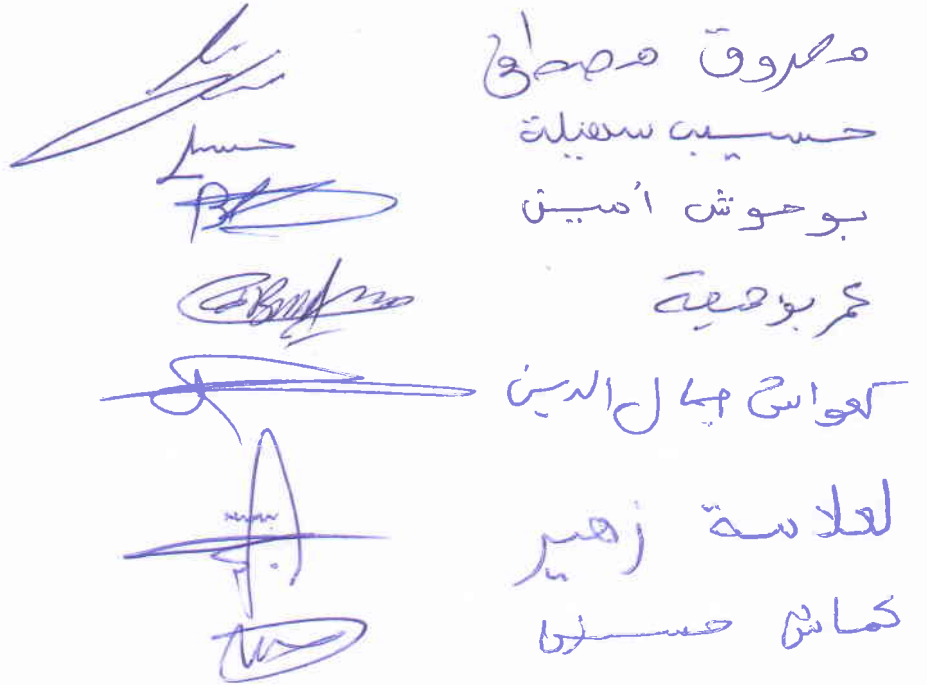 مصروق مصطفى
حسيب سهيلة
بوحوش أمين
عمر بوضية
كعواش جمال الدين
لعلاسة زهير
كماش حسين